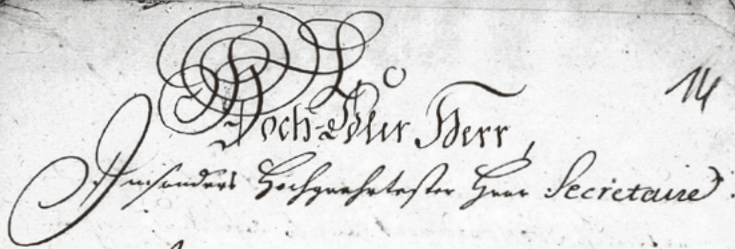 14
Hoch-Edler Herr,
Insonders Hochgeehrtester Herr Secretaire.